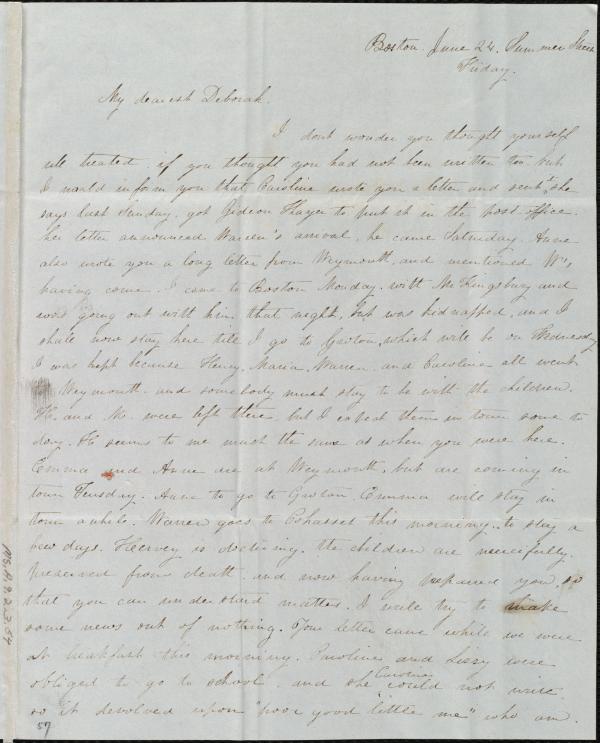 Boston. June 24. Summer Street
Friday.
My dearest Deborah.
I dont wonder you thought yourself
ill treated if you thought you had not been written too. but
I would inform you that Caroline wrote you a letter and sent it she
says last Sunday. got Gideon Thayer to put it in the post office.
her letter announced Warren's arrival, he came Saturday. Anne
also wrote you a long letter from Weymouth, and mentioned W's,
having come. I came to Boston Monday. with Mr Kingsbury and
was going out with him that night, but was kidnapped, and I
shall now stay here till I go to Groton, which will be on Wednesday
I was kept because Henry, Maria, Warren and Caroline all went
Weymouth. and somebody must stay to be with the children.
H. and M. were left there, but I expect them in town some to
day. H. seems to me much the same as when you were here.
Emma and Anne are at Weymouth, but are coming in
town Tuesday. Anne to go to Groton. Emma will stay in
town a while. Warren goes to Cohasset this morning.. to stay a
few days. Hervey is doctoring. the children are mercifully
preserved from death. and now having prepared you, so
that you can understand matters. I will try to make
some news out of nothing. Your letter came while we were
at breakfast this morning. Caroline and Lizzy were
obliged to go to school. and she Caroline could not write
so it devolved upon "poor good little me" who am.
Ms.A.9.2.3.54
57